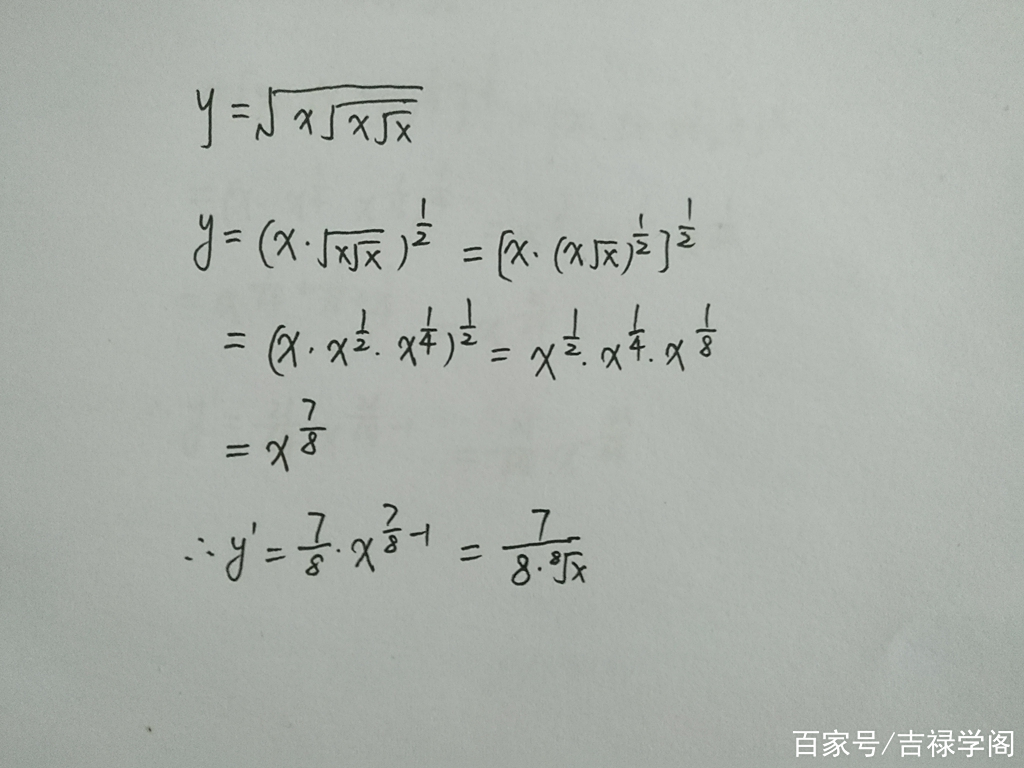 y = √(x√(x√x))
y = (x·√(x√x))^(1/2) = [x·(x√x)^(1/2)]^(1/2)
= (x·x^(1/2)·x^(1/4))^(1/2) = x^(1/2)·x^(1/4)·x^(1/8)
= x^(7/8)
∴ y' = 7/8·x^(7/8-1) = 7/(8·⁸√x)
百家号/吉禄学阁